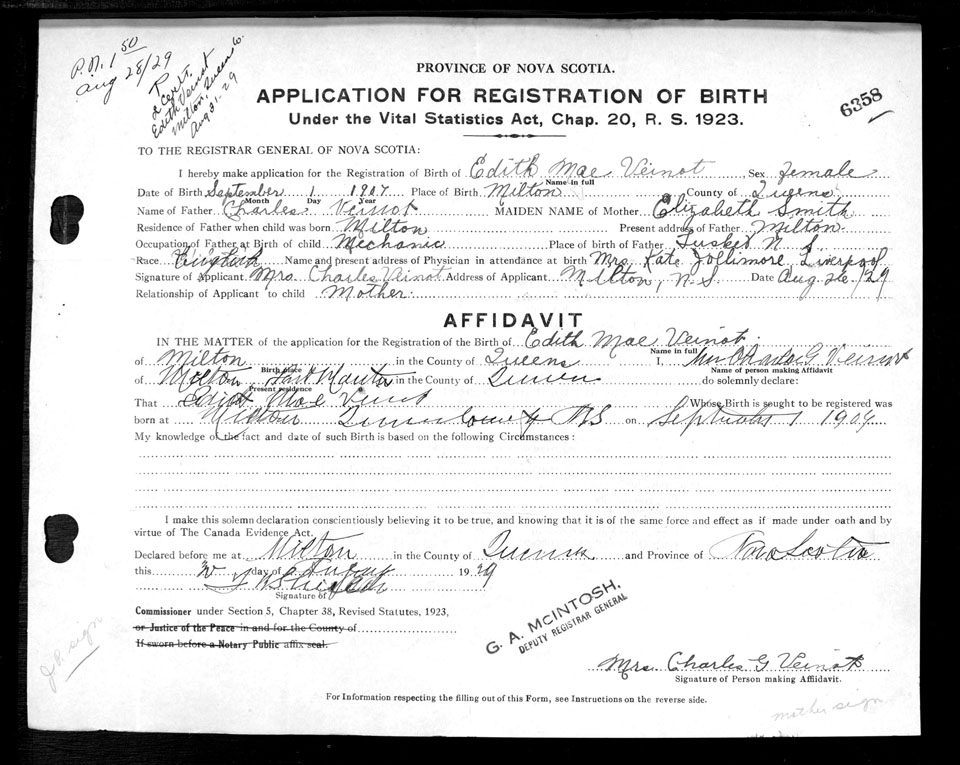 P.N. 1 50
Aug 28/29
2 Cert.
Edith Veinot
Milton, Queens Co.
Aug 31-29
PROVINCE OF NOVA SCOTIA.
APPLICATION FOR REGISTRATION OF BIRTH
Under the Vital Statistics Act, Chap. 20, R. S. 1923.
6358
TO THE REGISTRAR GENERAL OF NOVA SCOTIA:
I hereby make application for the Registration of Birth of Edith Mae Veinot Sex Female
Name in full
Date of Birth September 1 1907 Place of Birth Milton County of Queens
Month Day Year
Name of Father Charles Veinot MAIDEN NAME of Mother Elizabeth Smith
Residence of Father when child was born Milton Present address of Father Milton
Occupation of Father at Birth of child Mechanic Place of birth of Father Tusket N. S.
Race English Name and present address of Physician in attendance at birth Mrs. Kate Jollimore Liverpool
Signature of Applicant Mrs Charles Veinot Address of Applicant Milton, N. S. Date Aug. 26/29
Relationship of Applicant to child Mother
AFFIDAVIT
IN THE MATTER of the application for the Registration of the Birth of Edith Mae Veinot
Name in full
of Milton in the County of Queens I, Mrs Charles G Veinot
Birth place Name of person making Affidavit
of Milton in the County of Queens do solemnly declare:
Present residence
That Edith Mae Veinot Whose Birth is sought to be registered was
born at Milton Queens County NS on September 1 1907
My knowledge of the fact and date of such Birth is based on the following Circumstances:
I make this solemn declaration conscientiously believing it to be true, and knowing that it is of the same force and effect as if made under oath and by
virtue of The Canada Evidence Act.
Declared before me at Milton in the County of Queens and Province of Nova Scotia
this day of August 1929
Signature of
Commissioner under Section 5, Chapter 38, Revised Statutes, 1923,
or Justice of the Peace in and for the County of
If sworn before a Notary Public affix seal.
G. A. McINTOSH.
DEPUTY REGISTRAR GENERAL
J.P. sign
Mrs. Charles G Veinot
Signature of Person making Affidavit.
For Information respecting the filling out of this Form, see Instructions on the reverse side.
mother sign